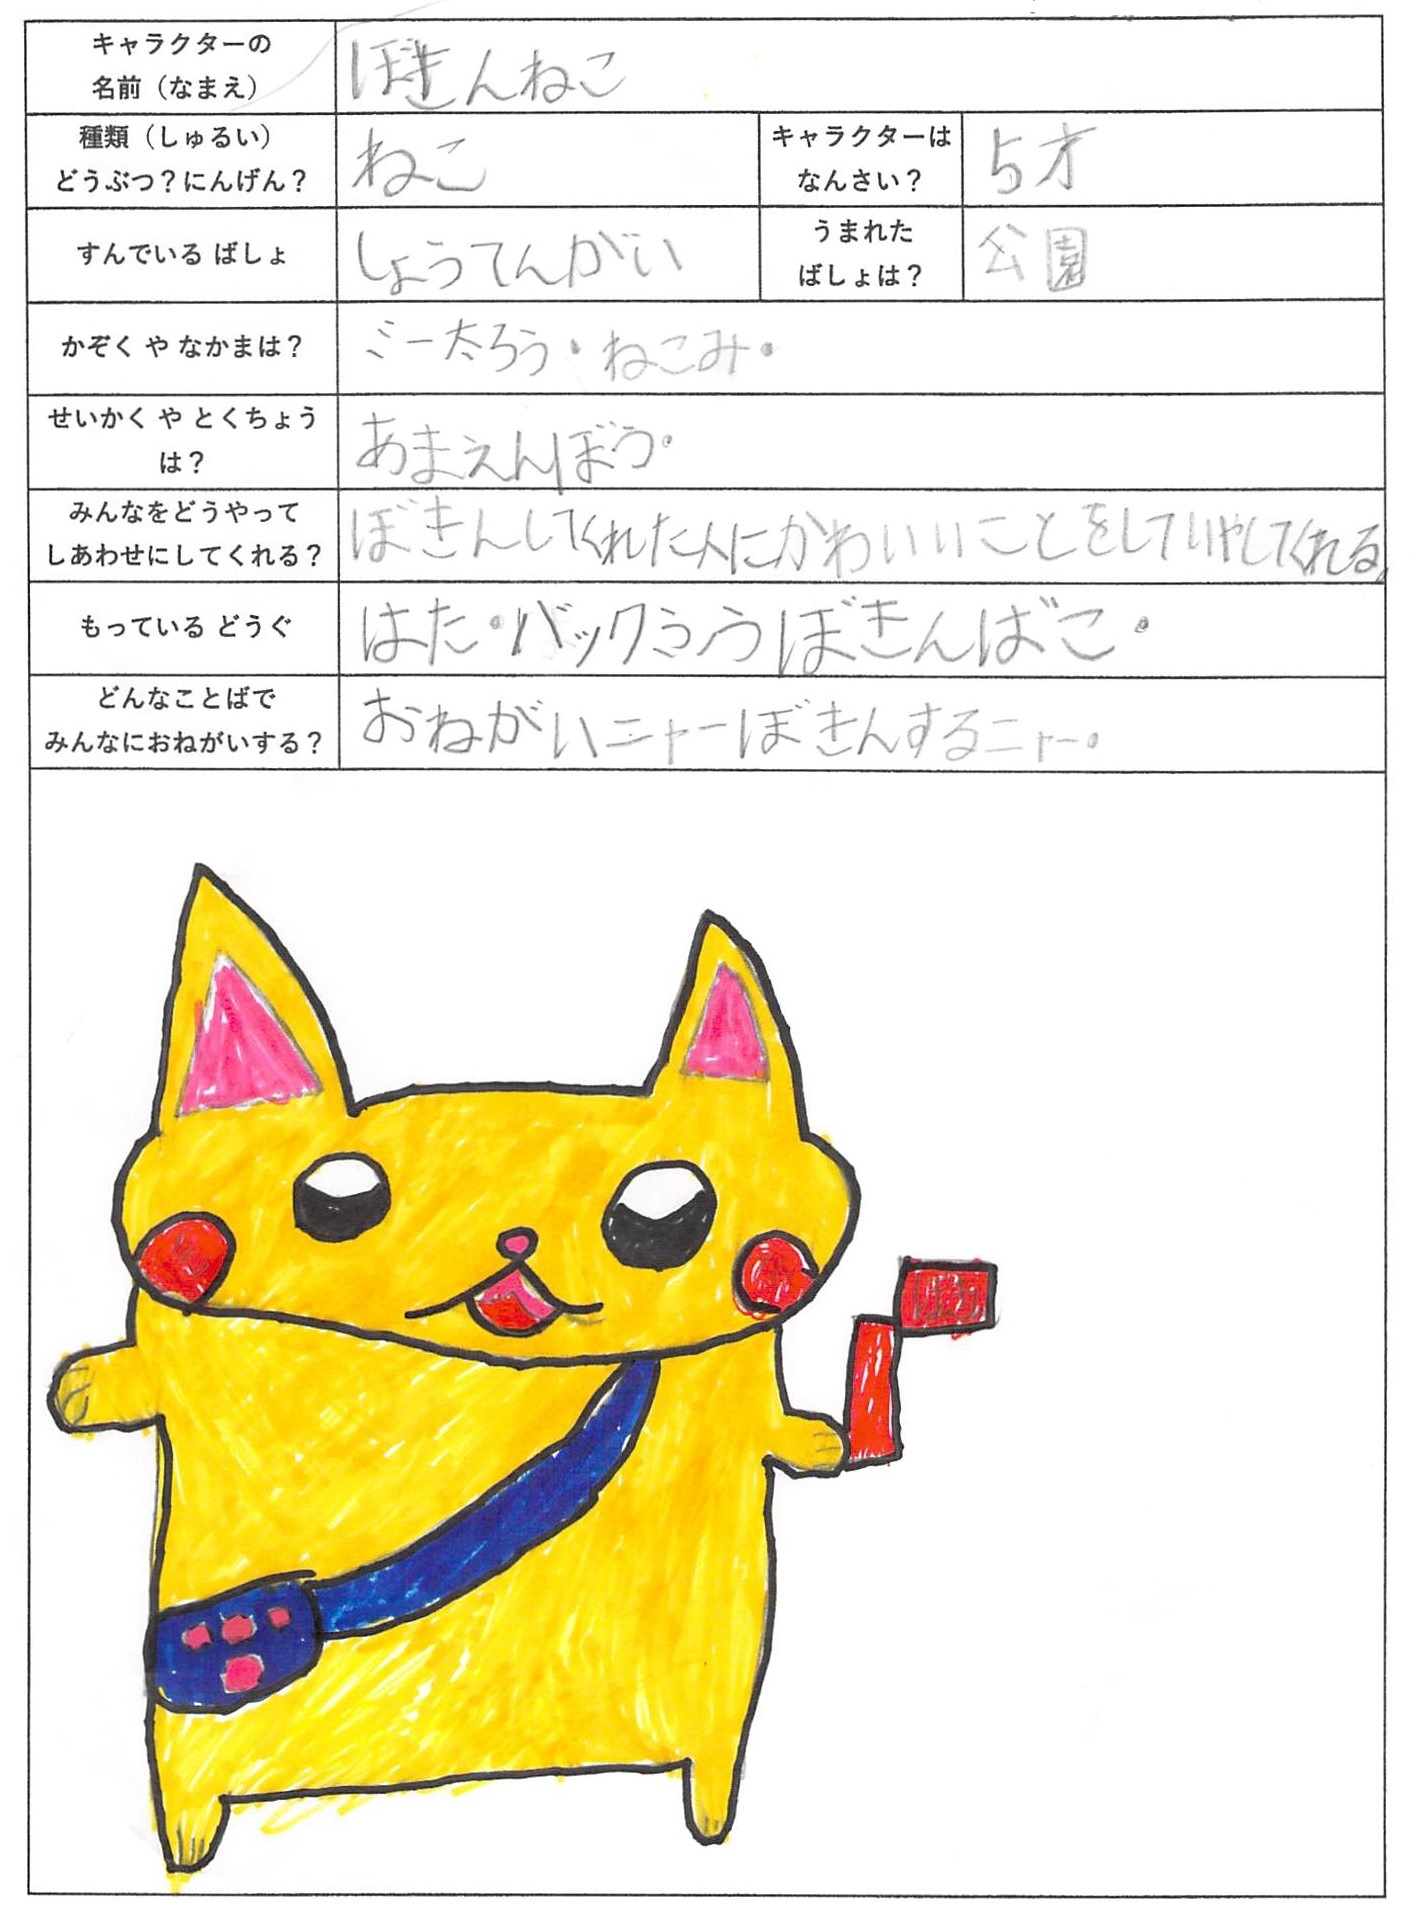 キャラクターの
名前（なまえ）
ぼきんねこ
種類（しゅるい）
どうぶつ？にんげん？
ねこ
キャラクターは
なんさい？
5才
すんでいる ばしょ
しょうてんがい
うまれた
ばしょは？
公園
かぞく や なかまは？
ミー太ろう・ねこみ・
せいかく や とくちょう
は？
あまえんぼう・
みんなをどうやって
しあわせにしてくれる？
ぼきんしてくれた人にかわいいことをしていやしてくれる。
もっている どうぐ
はた・バックふうぼきんばこ・
どんなことばで
みんなにおねがいする？
おねがいニャーぼきんするニャー。